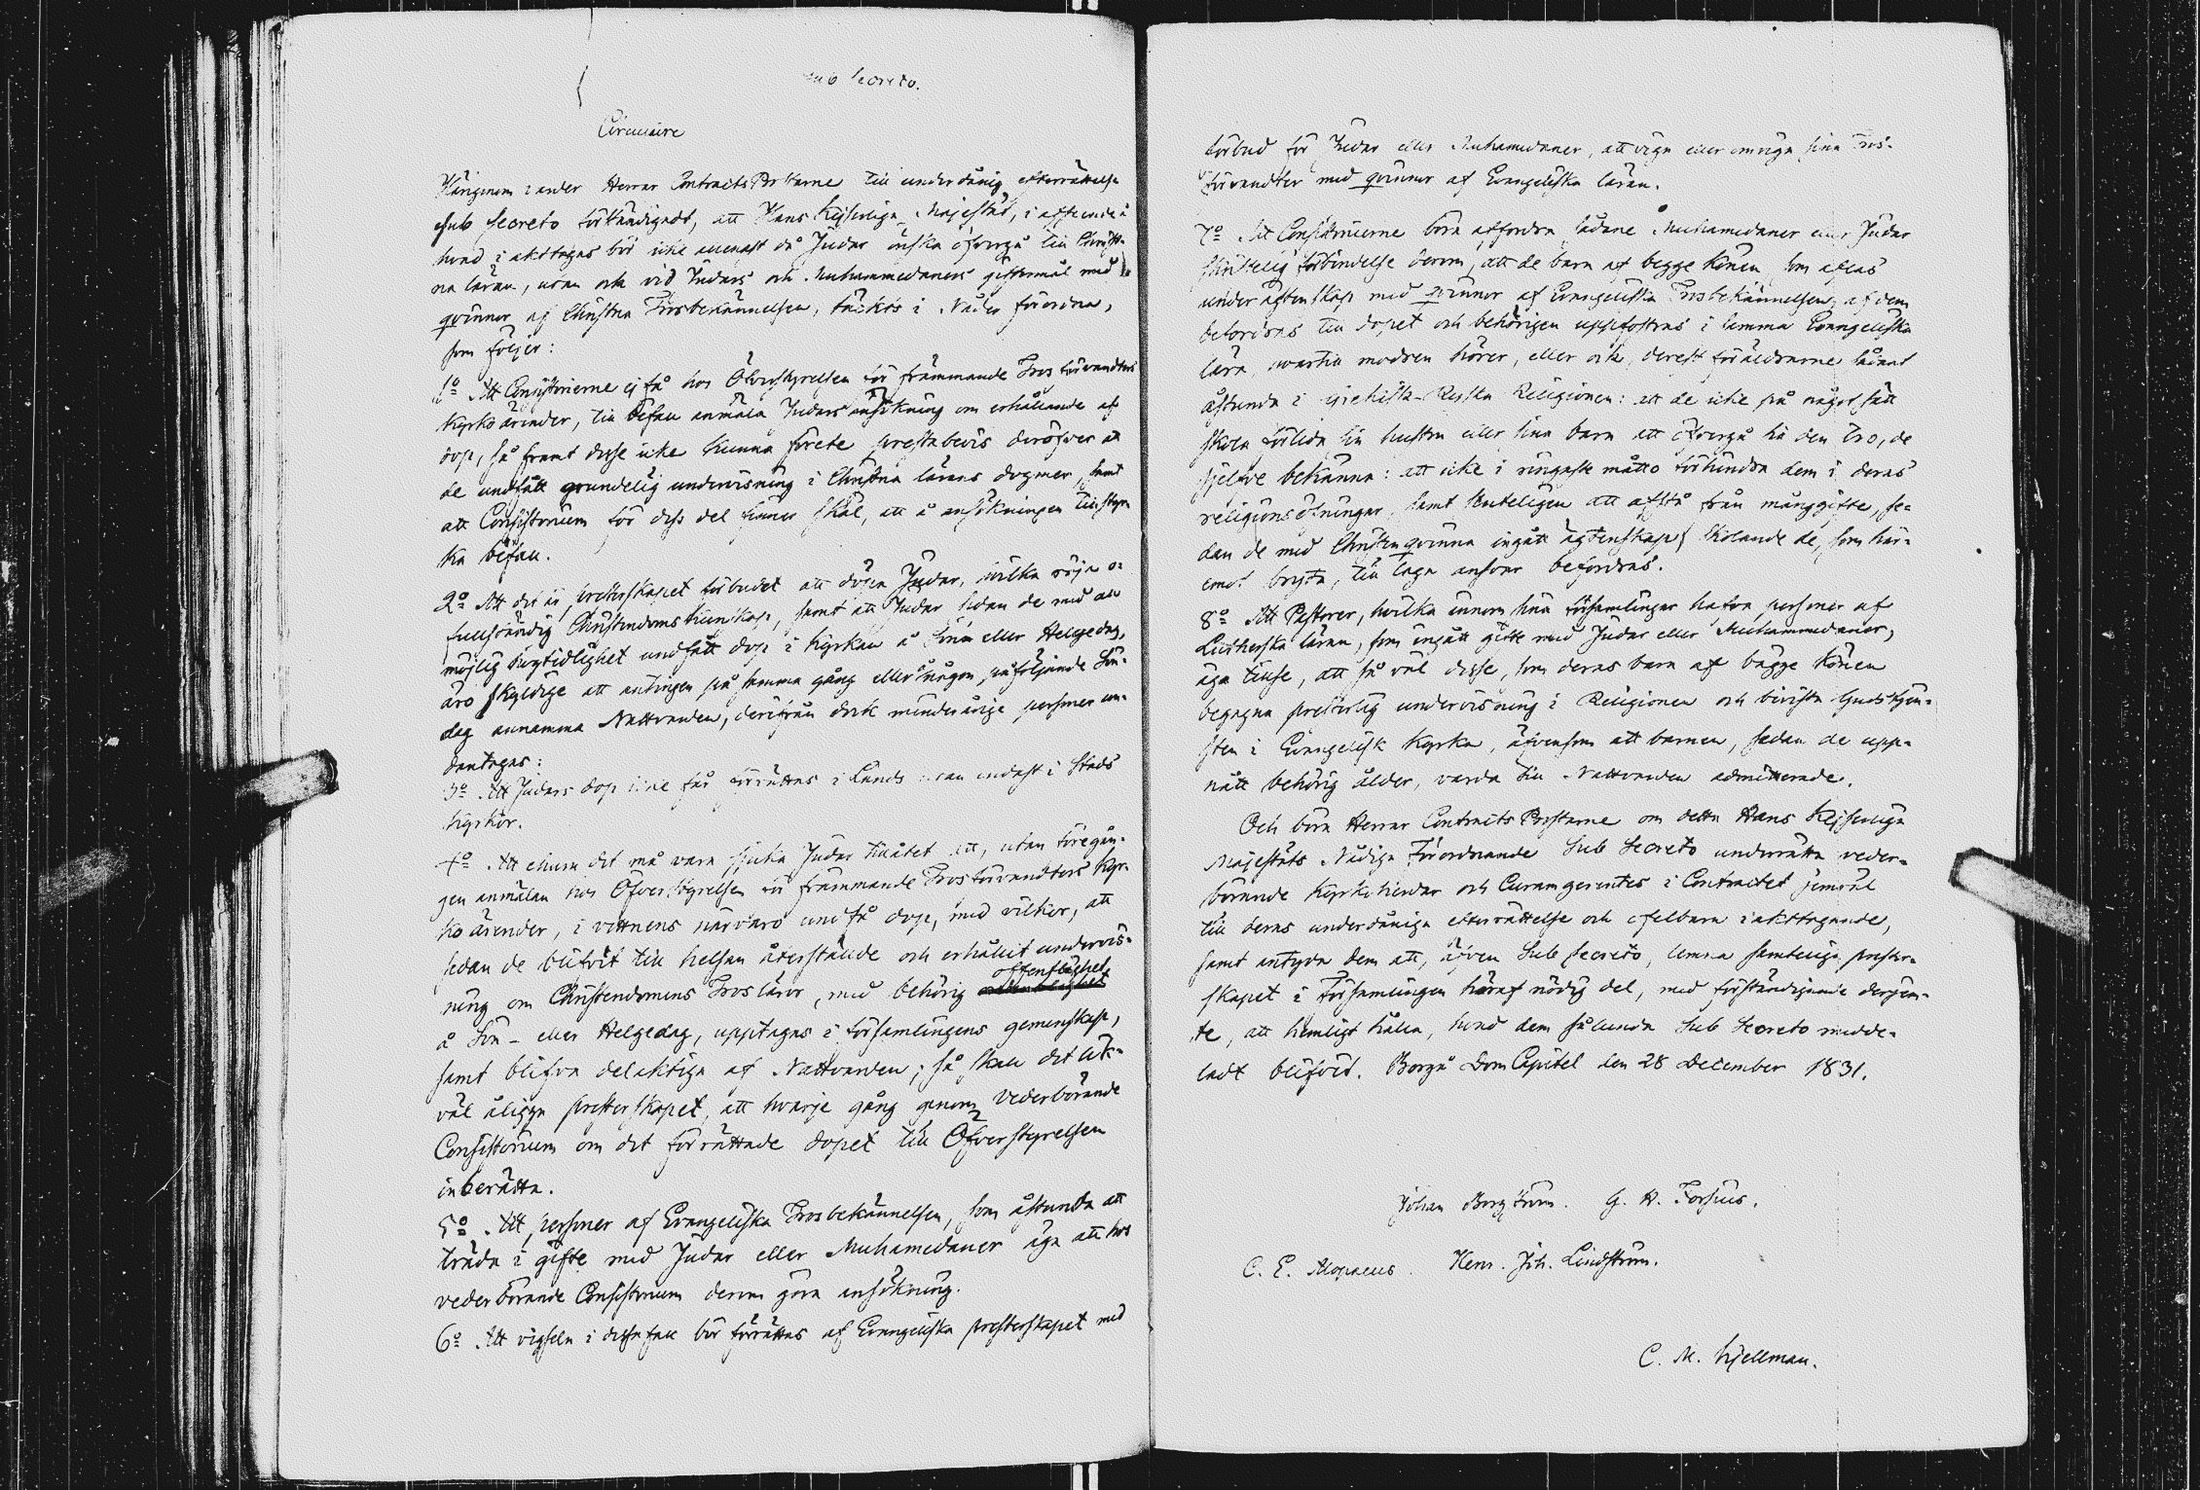 sub Secreto.
Circulaire
Härigenom varder Herrar ContractsProstarne till underdånig efterrättelse
sub Secreto tillkännadt, att Hans Kejserliga Majestät, i afseende å
hvad i akttagas bör icke allenast då Judar önska öfvergå till Christ-
na läran, utan ock vid Judars och Muhammedaners giftermål med
qvinnor af Christna Trosbekännelsen, täckts i Nåder förordna,
som följer:
1o. Att Consistorierne ej få hos Öfverstyrelsen för främmande Trosförvandters
Kyrkoärender, till bifall anmäla Judars ansökning om erhållande af
dop, så framt desse icke kunna förete prestabevis deröfver att
de undfått grundelig undervisning i Christna lärans dogmer, samt
att Consistorium för dess del finner skäl, att å ansökningen tillstyr-
ka bifall.
2o. Att det är presterskapet förbudet att döpa Judar, hvilka röja o-
fullständig Christendomskunskap, samt att Judar sedan de med all
möjlig högtidlighet undfått dop i kyrkan å Sönn eller Helgedag,
äro skyldige att antingen på samma gång eller någon påföljande Sön-
dag annamma Nattvarden, derifrån dock minderårige personer un-
dantagas:
3o. Att Judars dop icke får förrättas i Lands utan endast i Stads
kyrkor.
4o. Att ehuru det må vara sjuka Judar tillåtet att, utan föregån-
gen anmälan hos Öfverstyrelsen för främmande Trosförvandters Kyr-
ko ärender, i vittnens närvaro undfå dop, med vilkor, att
sedan de blifvit till helsan återstälde och erhållit undervis-
ning om Christendomens Trosläror, med behörig offentlighet
å Sön- eller Helgedag, upptagas i församlingens gemenskap,
samt blifva delaktiga af Nattvarden; så skall det lik-
väl åligga presterskapet, att hvarje gång genom vederbörande
Consistorium om det förrättade dopet till Öfverstyrelsen
inberätta.
5o. Att personer af Evangeliska Trosbekännelsen, som åstunda att
träda i gifte med Judar eller Muhamedaner äga att hos
vederbörande Consistorium derom göra ansökning.
6o. Att vigseln i dessa fall bör förrättas af Evangeliska presterskapet med
förbud för Judar eller Muhamedaner, att viga eller omviga sina Tros-
förvandter med qvinnor af Evangeliska läran.
7o. Att Consistorierne böra affordra sådane Muhamedaner eller Judar
skriftelig förbindelse derom, att de barn af begge könen, som aflas
under äktenskap med qvinnor af Evangeliska Trosbekännelsen, af dem
befordras till dopet och behörigen uppfostras i samma Evangeliska
lära, hvartill modren hörer, eller ock, derest föräldrarne sådant
åstunda i Grekisk-Ryska Religionen: att de icke på något sätt
skola förleda sin hustru eller sina barn att öfvergå till den tro, de
sjelfve bekänna: att icke i ringaste måtto förhindra dem i deras
religionsöfningar, samt slutligen att afstå från månggifte, se-
dan de med Christen qvinna ingått äktenskap; skolande de, som här-
emot bryta, till laga ansvar befordras.
8o. Att Pastorer, hvilka innom sina församlingar hafva personer af
Lutherska läran, som ingått gifte med Judar eller Muhammedaner,
äga tillse, att så väl desse, som deras barn af bägge könen
begagna presterlig undervisning i Religionen och bivista Gudstjen-
sten i Evangelisk Kyrka, äfvensom att barnen, sedan de upp-
nått behörig ålder, varda till Nattvarden admitterade.
Och böra Herrar Contracts Prostarne om detta Hans Kejserliga
Majestäts Nådiga Förordnande Sub Secreto underrätta veder-
börande Kyrkoherdar och Curam gerentes i Contractet jemväl
till deras underdåniga efterrättelse och ofelbara iakttagande,
samt antyda dem att, äfven Sub Secreto, lemna samteliga prester-
skapet i Församlingen häraf nödig del, med förständigande derjem-
te, att hemligt hålla, hvad dem sålunda Sub Secreto medde-
ladt blifvit. Borgå DomCapitel den 28 December 1831.
Johan Borgström. G. A. Forsius.
C. E. Alopaeus. Henr. Joh. Lindström.
C. M. Kjellman.